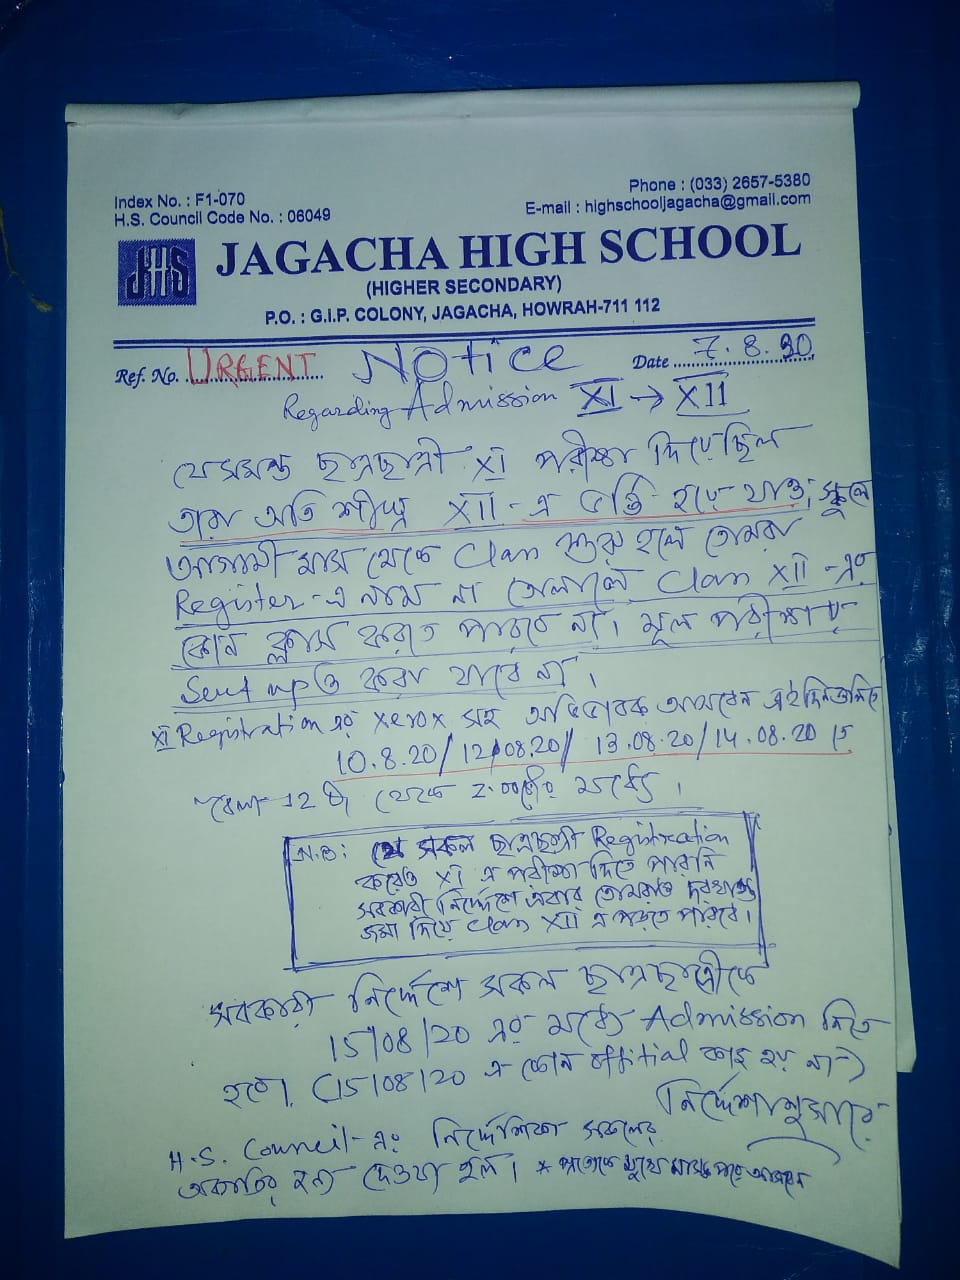 Index No. : F1-070
H.S. Council Code No. : 06049
Phone : (033) 2657-5380
E-mail : highschooljagacha@gmail.com
JHS
JAGACHA HIGH SCHOOL
(HIGHER SECONDARY)
P.O. : G.I.P. COLONY, JAGACHA, HOWRAH-711 112
Ref. No. URGENT
Notice
Date 7.8.20
Regarding Admission XI → XII
যে সমস্ত ছাত্রছাত্রী XI পরীক্ষা দিয়েছিল
তারা অতি শীঘ্র XII-এ ভর্তি হয়ে যাও, স্কুলে
আগামী মাস থেকে Class শুরু হলে তোমরা
Register-এ নাম না তোলালে Class XII-এর
কোন ক্লাস করতে পারবে না। মূল পরীক্ষায়
Sent upও করা যাবে না।
XI Registration এর xerox সহ অভিভাবক আসবেন এই দিনগুলিতে
10.8.20/ 12/08.20/ 13.08.20/ 14.08.20
বেলা 12 টা থেকে 2.00টার মধ্যে।
N.B: যে সকল ছাত্রছাত্রী Registration
করেও XI এ পরীক্ষা দিতে পারনি
সরকারী নির্দেশে এবার তোমরাও দরখাস্ত
জমা দিয়ে Class XII এ পড়তে পারবে।
সরকারী নির্দেশে সকল ছাত্রছাত্রীকে
15/08/20 এর মধ্যে Admission নিতে
হবে। (15/08/20 এ কোন offitial কাজ হয় না)
নির্দেশানুসারে
H.S. Council-এর নির্দেশিকা সকলের
অবগতির জন্য দেওয়া হল। * প্রত্যেকে মুখে মাস্ক পরে আসবেন